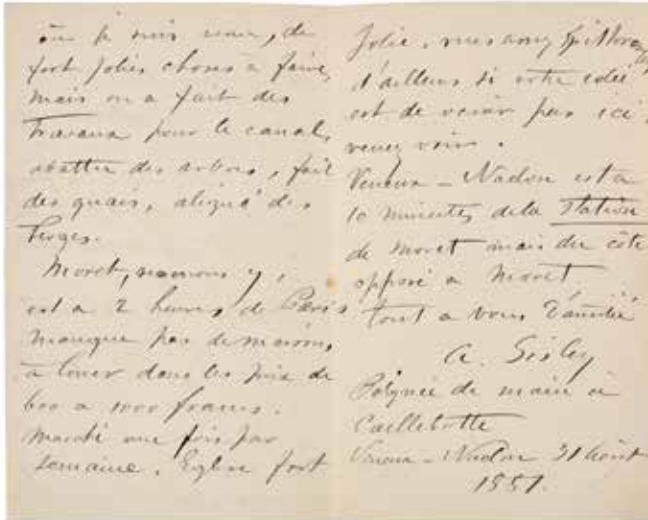 où je suis venu, de
fort jolies choses à faire,
mais on a fait des
travaux pour le canal,
abattu des arbres, fait
des quais, aligné des
berges.
Moret, revenons y,
est a 2 heures de Paris
manque pas de maisons
a louer dans les prix de
600 a 1000 francs.
Marché une fois par
semaine, Eglise fort
Jolie, vues assez pittoresques
d'ailleurs si votre idée
est de venir par ici,
venez voir.
Veneux-Nadon est a
10 minutes de la Station
de moret mais du côté
opposé a Moret,
tout a vous d'amitié
A. Sisley
Poignée de main a
Caillebotte
Veneux-Nadon 31 Août
1881.